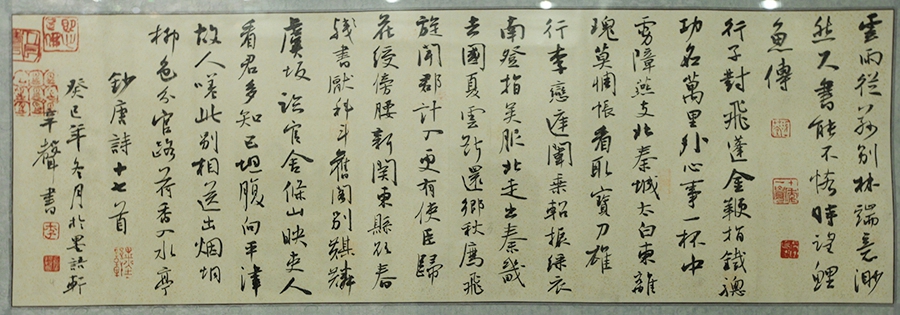 雲雨從茲別林端意渺
然尺書能不恡時望鯉
魚傳
行子對飛蓬金鞭指鐵驄
功名萬里外心事一杯中
虜障燕支北秦城太白東離
魂莫惆悵看取寶刀雄
行李戀庭闈乘軺振綵衣
南登指吳服北走出秦畿
去國夏雲斷還鄉秋雁飛
旋聞郡計入更有使臣歸
花綬傍腰新關東縣欲春
殘書厭科斗舊閣別麒麟
虞坂臨官舍條山映吏人
看君多知己坦腹向平津
故人嗟此別相送出烟坰
柳色分官路荷香入水亭
鈔唐詩十七首
癸巳年冬月於軒
聲書